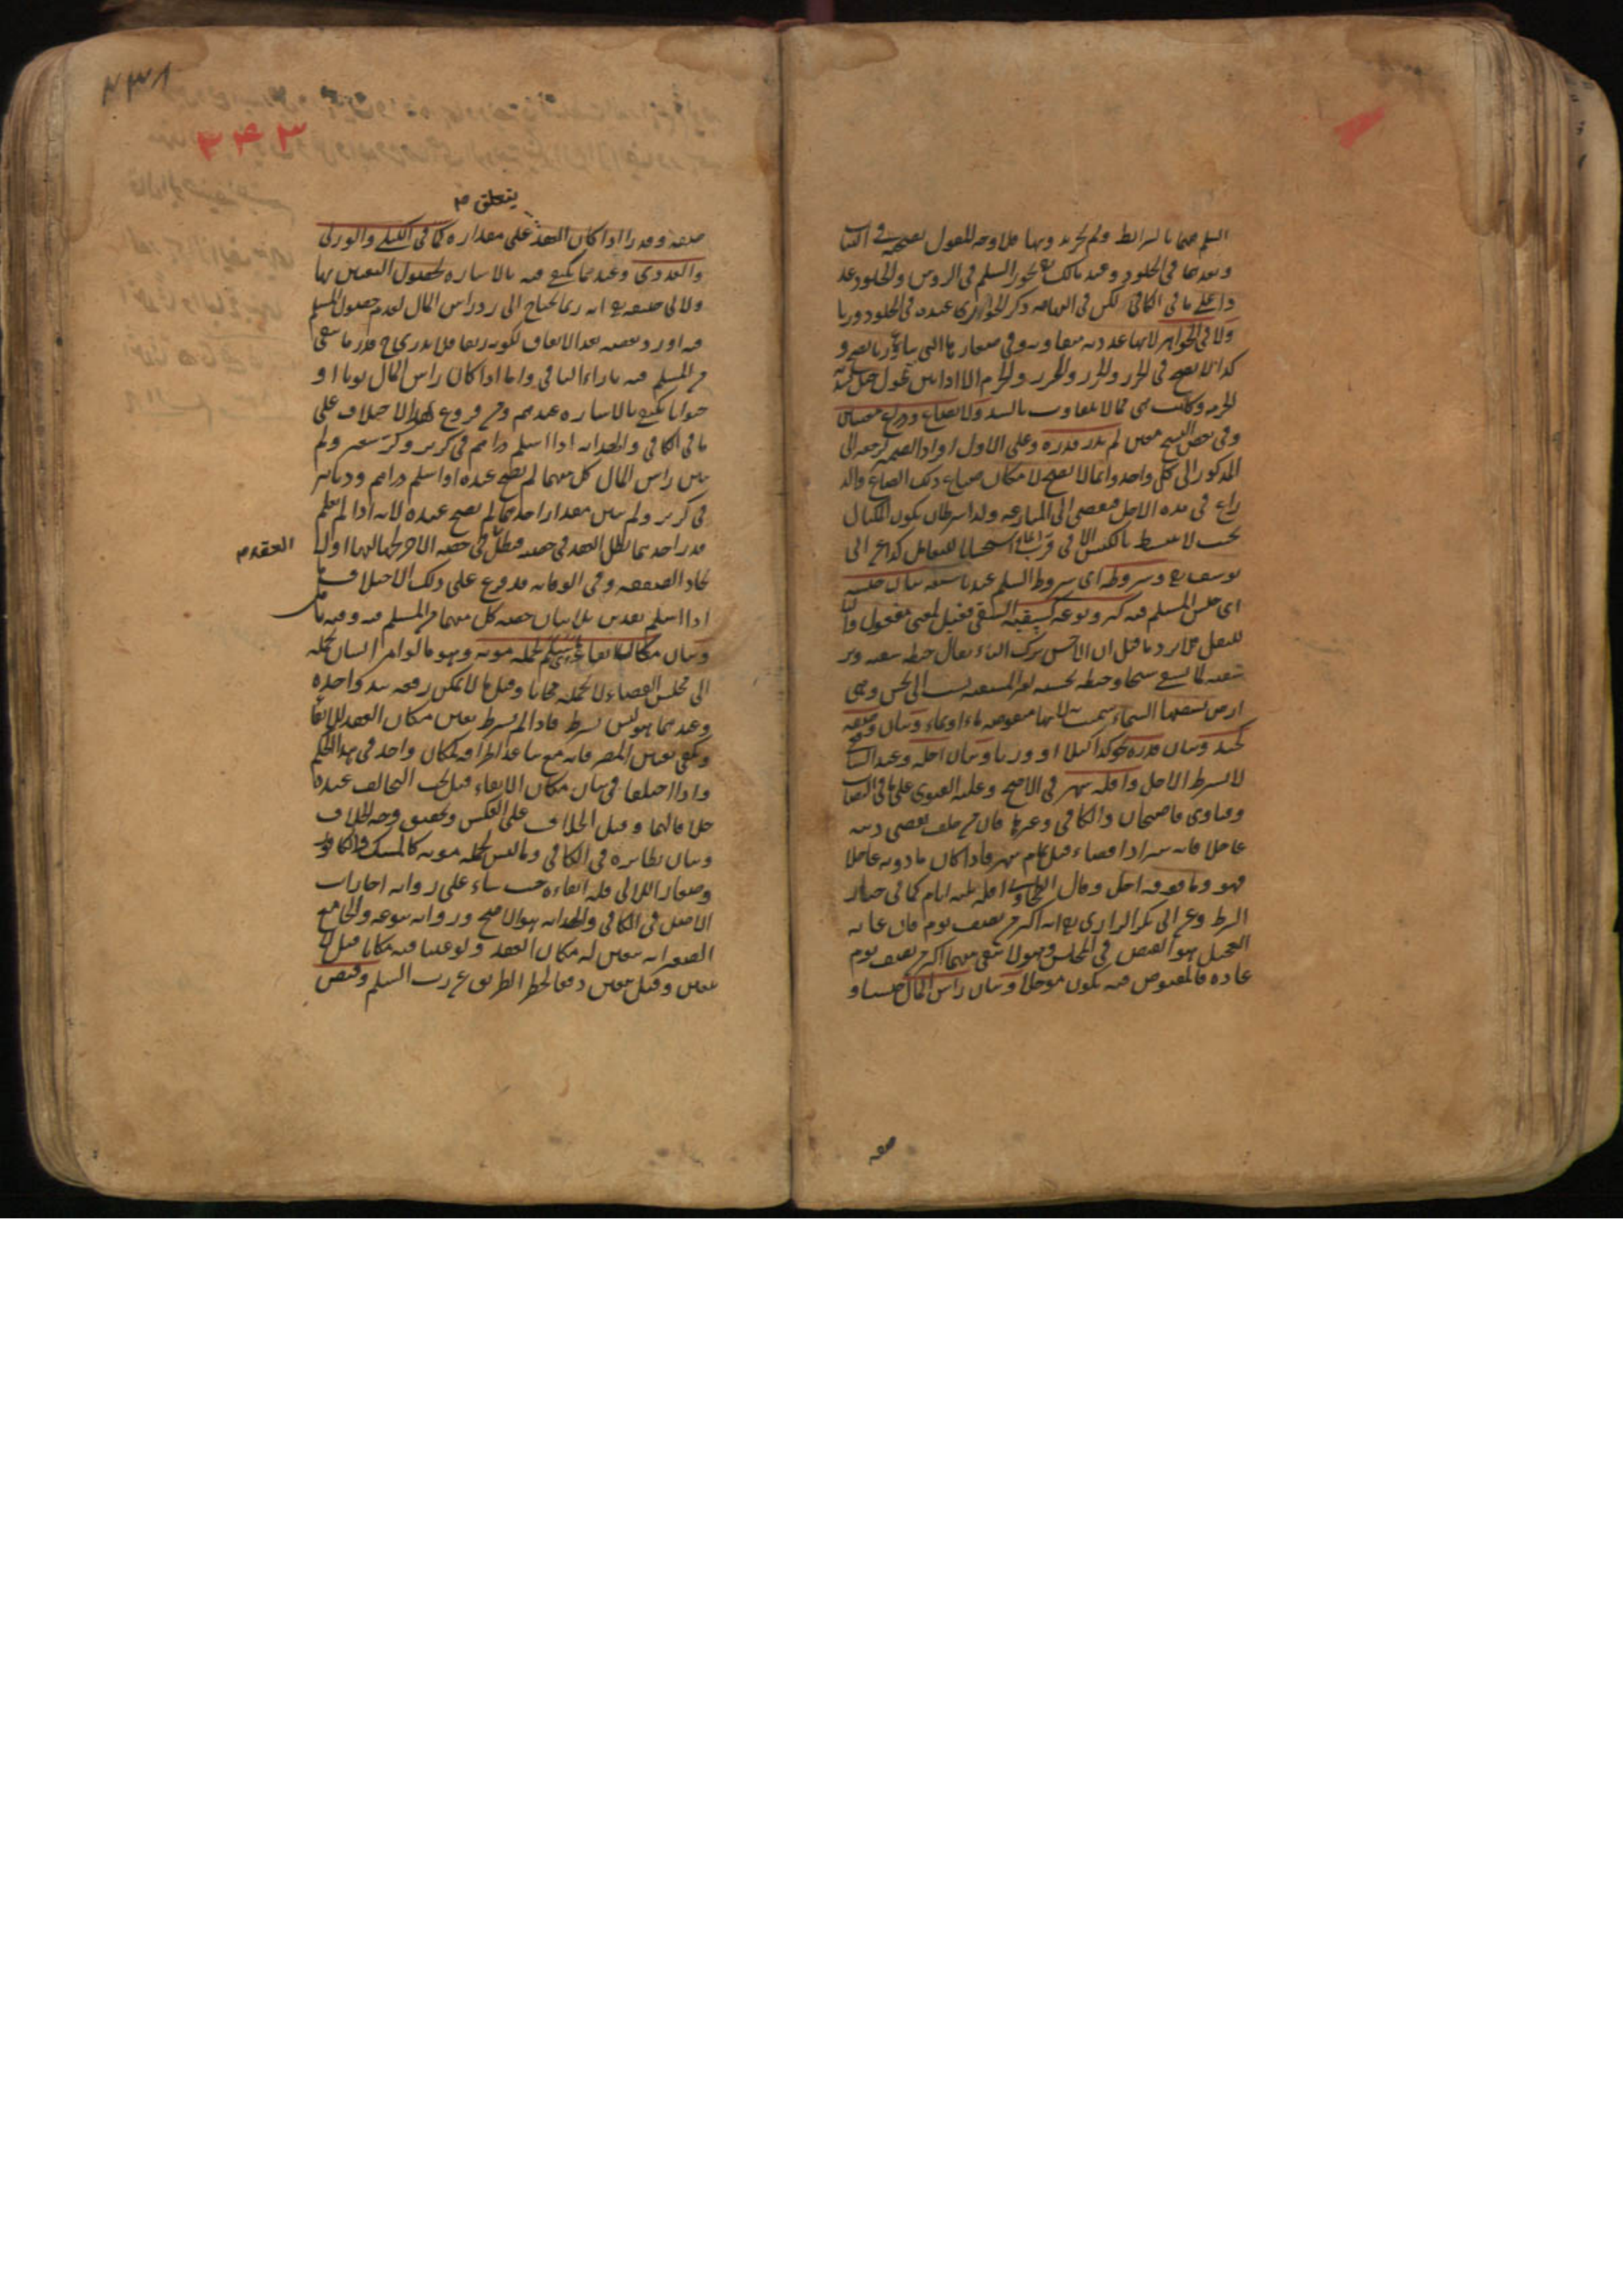 السلم فيهما بالشرايط ولم نجد وبها فلا وجه للقول بصحته في الثياب
وبعدها في الجلود وعند مالك يجوز السلم في الروس والجلود عد
دا على ما في الكافي لكن في النهاية ذكر الجواز عنده في الجلود وزنا
ولا في الجواهر لانها عددية متفاوتة وفي صغارها التي تباع وزنا يصح و
كذا لا يصح في الجزر والجزم الا اذا بين طول حبل
الحزمة وكانت هي مما لا يتفاوت بالشد ولا بصاع وذراع معينين
وفي بعض النسخ معين لم يدر قدره وعلى الاول افراد الضمير لرجعه الى
المذكور الى كل واحد وانما لا يصح لامكان ضياع ذلك الصاع والذ
راع في مدة الاجل فيفضي الى المنازعة ولذا شرط ان يكون المكيال
بحيث لا ينبسط بالكبس الا في قرب الماء استحسانا للتعامل كذا عن ابي
يوسف رح وشروطه اي شروط السلم عندنا سبعة بيان جنسه
اي جنس المسلم فيه كبر ونوعه كسقية السقي فعيل بمعنى مفعول والتا
للنقل فلا يرد ما قيل ان الاحسن ترك التاء يقال حنطة سقية وبر
ارض تسقيها السماء سميت به لانها منقوصة ماء او عماء وبيان صفته
كجيد وبيان قدره نحو كذا كيلا او وزنا وبيان اجله وعند الشا
لا يشترط الاجل واقله شهر في الاصح وعليه الفتوى على ما في النصاب
وفتاوى قاضيخان والكافي وغيرها فان من حلف ليقضين دينه
عاجلا فانه يبر اذا قضاه قبل تمام شهر فاذا كان ما دونه عاجلا
فهو وما فوقه اجل وقال الطحاوي اقله ثلثة ايام كما في خيار
الشرط وعن ابي بكر الرازي رح انه اكثر من نصف يوم فان غاية
التعجيل هو القبض في المجلس وهو لا يبقى بينهما اكثر من نصف يوم
عادة فالمقبوض فيه يكون موجلا وبيان راس المال جنسا و
صفة
٢٣٨
٢٤٣
يتعلق م
صفة وقدرا اذا كان العقد على مقداره كما في الكيلي والوزني
والعددي وعندهما يكفي فيه بالاشارة لحصول التعيين بها
ولابي حنيفة رح انه ربما يحتاج الى رد راس المال لعدم حصول المسلم
فيه او رد بعضه بعد الانفاق لكونه زيفا فلا يدري ح قدر ما بقي
من المسلم فيه بازاء الباقي واما اذا كان راس المال ثوبا او
حيوانا يكفي بالاشارة عندهم ومن فروع هذا الاختلاف على
ما في الكافي والهداية اذا اسلم دراهم في كر بر وكر شعير ولم
يبين راس المال كل منهما لم يصح عنده او اسلم دراهم ودنانير
في كر بر ولم يبين مقدار احدهما لم يصح عنده لانه اذا لم يعلم
قدر احدهما بطل العقد في حصته فبطل في حصة الآخر
العقد م
تحاد الصفقة وفي الوقاية قد فرع على ذلك الاختلاف
اذا اسلم نقدين بلا بيان حصة كل منهما من المسلم فيه وفيه تا مل
وبيان مكان ايفاء مسلم لحمله مونة وهو ما لو امر انسان بحمله
الى مجلس القضاء لا يحمله مجانا وقيل ما لا يمكن رفعه بيد واحدة
وعندهما هو ليس بشرط فاذا لم يشترط تعين مكان العقد للايفا
ويكفي تعيين المصر فانه مع تباعد اطرافه كمكان واحد في هذا الحكم
واذا اختلفا في بيان مكان الايفاء قيل يجب التحالف عنده
خلافا لهما وقيل الخلاف على العكس وتحقيق وجه الخلاف
وبيان نظائره في الكافي وما ليس لحمله مونة كالمسك والكافور
وصغار اللآلى فله ايفاءه حيث شاء على رواية اجارات
الاصل في الكافي والهداية هو الاصح ورواية بيوعه والجامع
الصغير انه يتعين له مكان العقد ولو عينا فيه مكانا قيل لا
يتعين وقيل يتعين دفعا لخطر الطريق عن رب السلم وقبض